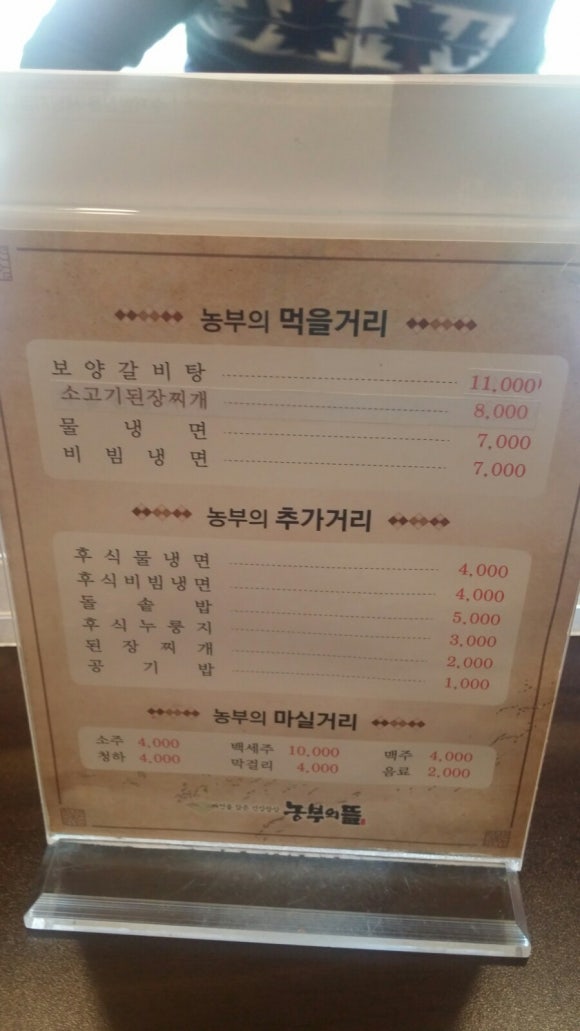 농부의 먹을거리
보양갈비탕 11,000
소고기된장찌개 8,000
물냉면 7,000
비빔냉면 7,000
농부의 추가거리
후식물냉면 4,000
후식비빔냉면 4,000
돌솥밥 5,000
후식누룽지 3,000
된장찌개 2,000
공기밥 1,000
농부의 마실거리
소주 4,000 백세주 10,000 맥주 4,000
청하 4,000 막걸리 4,000 음료 2,000
농부의뜰